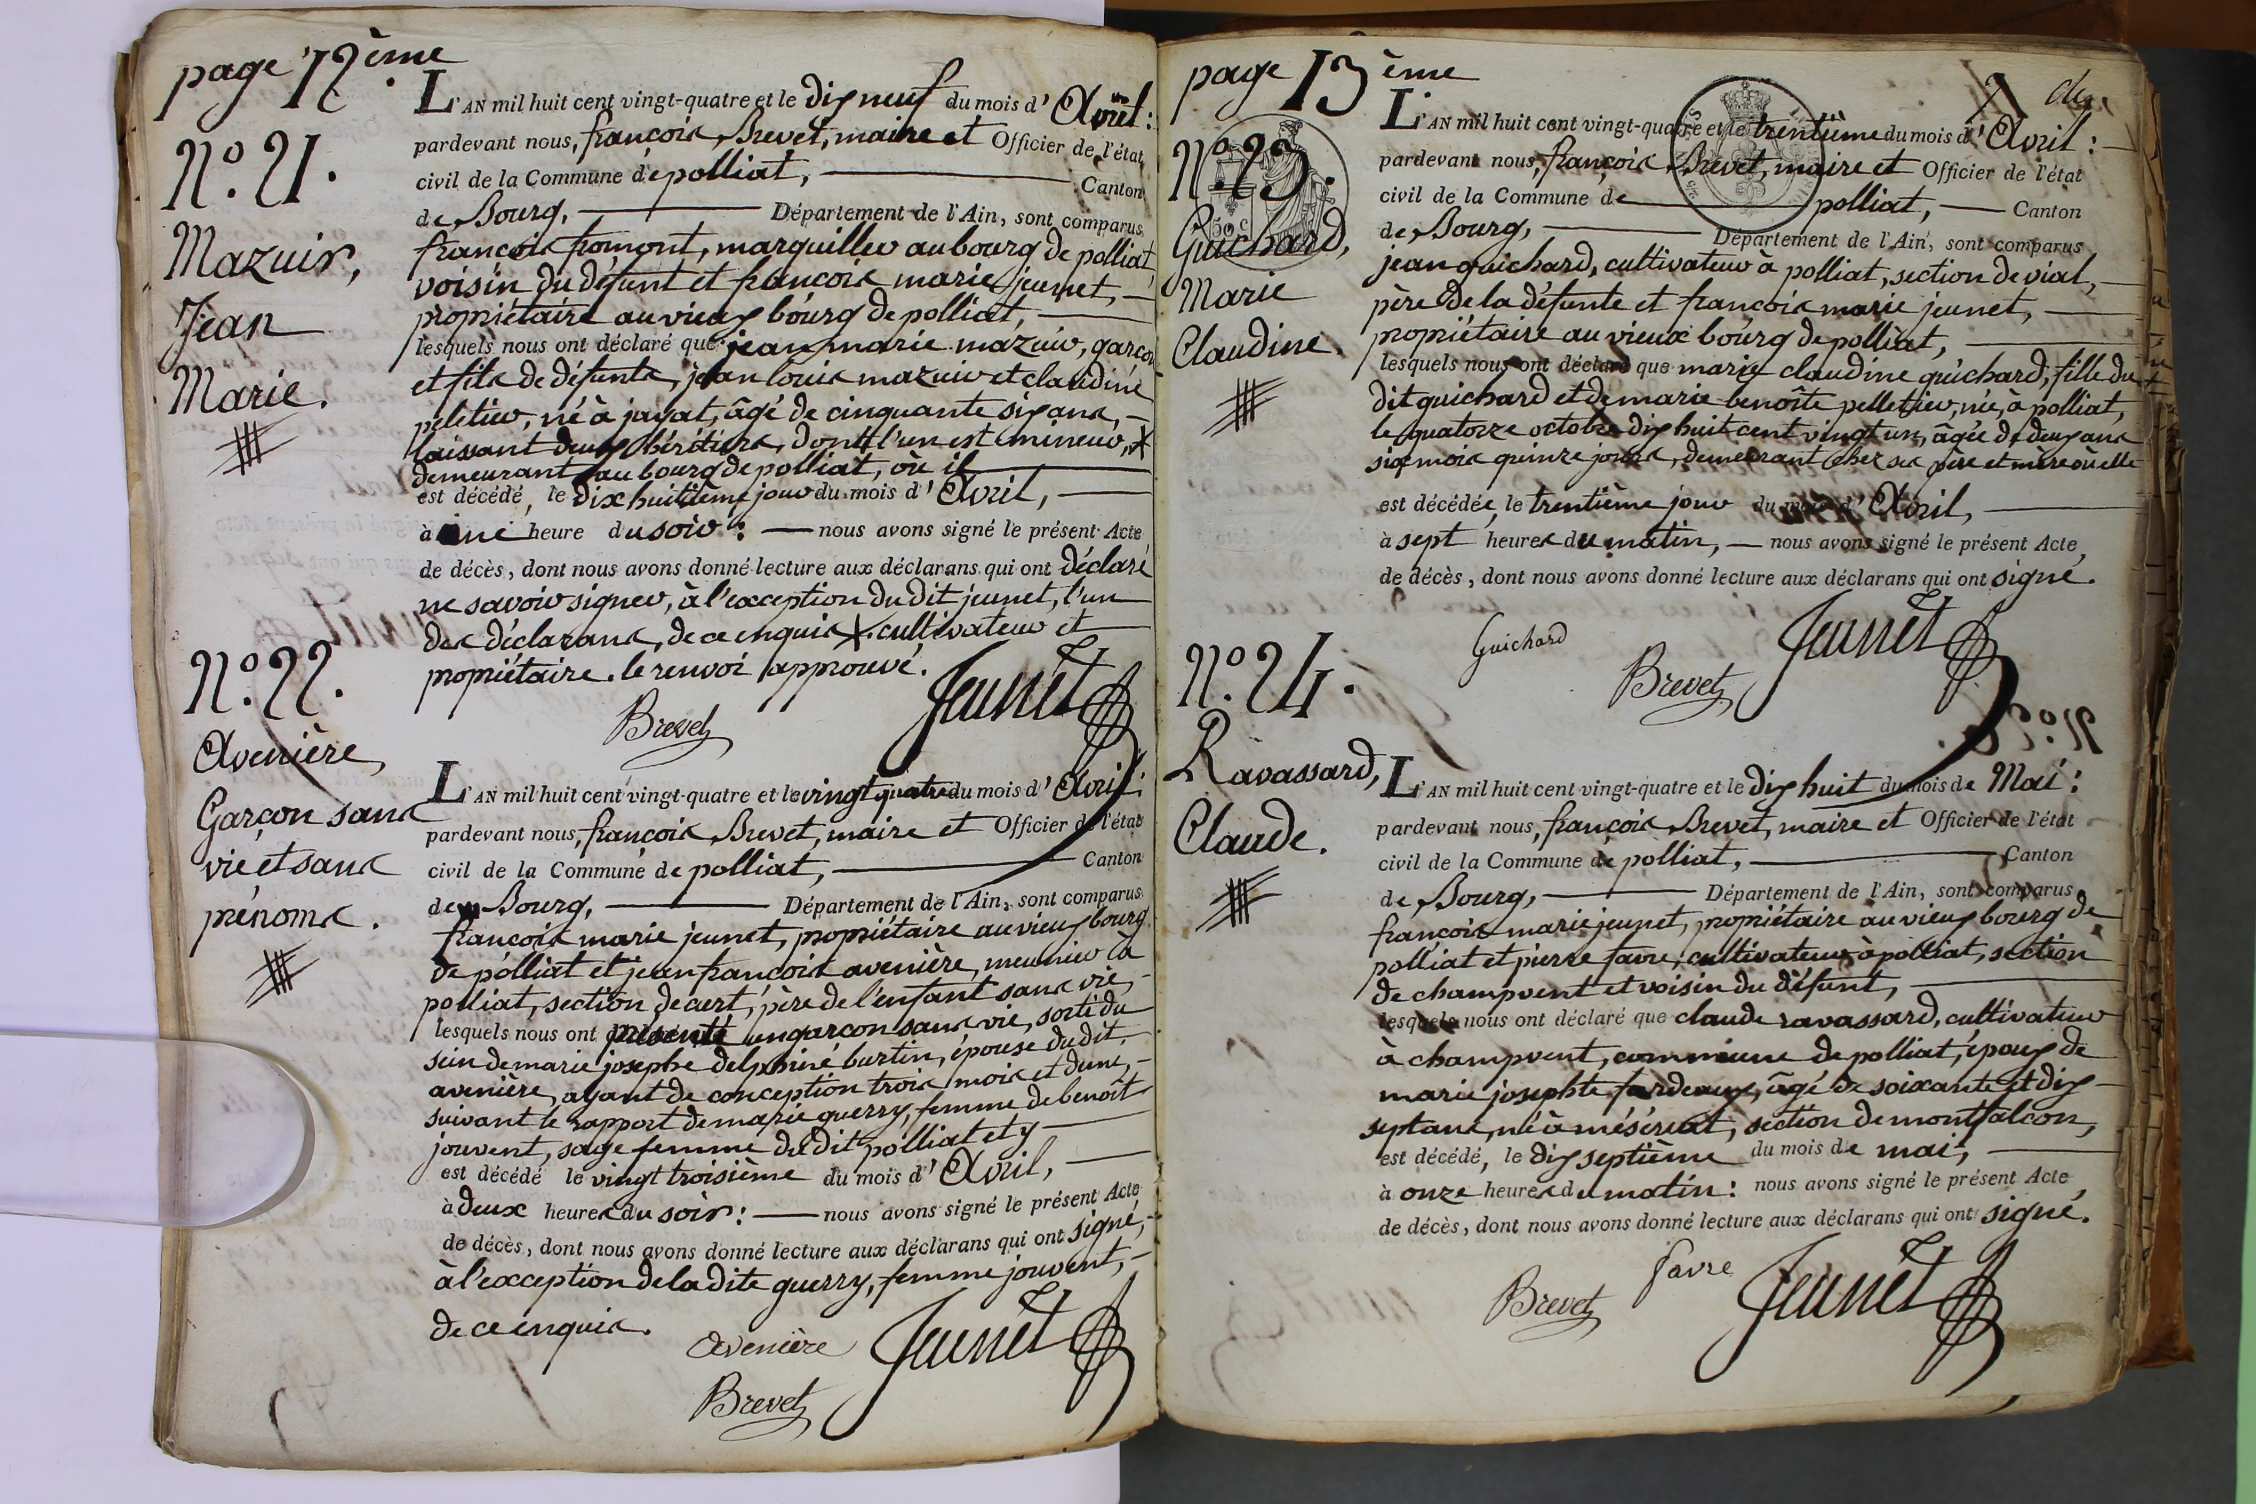 page 12ème
N.º 21.
Mazuir,
Jean
Marie.
L'AN mil huit cent vingt-quatre et le dix neuf du mois d' Avril :
pardevant nous, françois Brevet, maire et Officier de l'état
civil de la Commune de polliat, Canton
de Bourg, Département de l'Ain, sont comparus
françois fromont, marguillier au bourg de polliat,
voisin du défunt et françois marie jeunet,
propriétaire au vieux bourg de polliat,
lesquels nous ont déclaré que jean marie mazuir, garçon
et fils de défunts, jean louis mazuir et claudine
peletier, né à jayat, âgé de cinquante six ans,
laissant deux héritiers, dont l'un est mineur, X
demeurant au bourg de polliat, où il
est décédé, le dix huitième jour du mois d' Avril,
à une heure du soir : nous avons signé le présent Acte
de décès, dont nous avons donné lecture aux déclarans qui ont déclaré
ne savoir signer, à l'exception du dit jeunet, l'un
des déclarans, de ce enquis X cultivateur et
propriétaire. le renvoi approuvé.
Brevet Jeunet
N.º 22.
Avenière,
Garçon sans
vie et sans
prénoms.
L'AN mil huit cent vingt-quatre et le vingt quatre du mois d' Avril :
pardevant nous, françois Brevet, maire et Officier de l'état
civil de la Commune de polliat, Canton
de Bourg, Département de l'Ain, sont comparus
françois marie jeunet, propriétaire au vieux bourg
de polliat et jean françois avenière, meunier à
polliat, section de curt, père de l'enfant sans vie,
lesquels nous ont présenté un garçon sans vie, sorti du
sein de marie josephe delphine burtin, épouse du dit
avenière, ayant de conception trois mois et demi,
suivant le rapport de marie guerry, femme de benoît
jouvent, sage femme du dit polliat et y
est décédé le vingt troisième du mois d' Avril,
à deux heures du soir : nous avons signé le présent Acte
de décès, dont nous avons donné lecture aux déclarans qui ont signé,
à l'exception de la dite guerry, femme jouvent,
de ce enquis.
avenière Jeunet
Brevet
page 13ème
N.º 23.
Guichard,
Marie
Claudine.
L'AN mil huit cent vingt-quatre et le trentième du mois d' Avril :
pardevant nous, françois Brevet, maire et Officier de l'état
civil de la Commune de polliat, Canton
de Bourg, Département de l'Ain, sont comparus
jean guichard, cultivateur à polliat, section de vial,
père de la défunte et françois marie jeunet,
propriétaire au vieux bourg de polliat,
lesquels nous ont déclaré que marie claudine guichard, fille du
dit guichard et de marie benoîte pelletier, née, à polliat,
le quatorze octobre dix huit cent vingt un, âgée de deux ans
six mois quinze jours, demeurant chez ses père et mère où elle
est décédée, le trentième jour du mois d' Avril,
à sept heures du matin, nous avons signé le présent Acte
de décès, dont nous avons donné lecture aux déclarans qui ont signé.
Guichard Jeunet
Brevet
N.º 24.
Ravassard,
Claude.
L'AN mil huit cent vingt-quatre et le dix huit du mois de Mai :
pardevant nous, françois Brevet, maire et Officier de l'état
civil de la Commune de polliat, Canton
de Bourg, Département de l'Ain, sont comparus
françois marie jeunet, propriétaire au vieux bourg de
polliat et pierre favre, cultivateur à polliat, section
de champvent et voisin du défunt,
lesquels nous ont déclaré que claude ravassard, cultivateur
à champvent, commune de polliat, époux de
marie josephte fardeaux, âgé de soixante et dix
sept ans, né à mésériat, section de montfalcon,
est décédé, le dix septième du mois de mai,
à onze heures du matin : nous avons signé le présent Acte
de décès, dont nous avons donné lecture aux déclarans qui ont signé.
favre
Brevet Jeunet